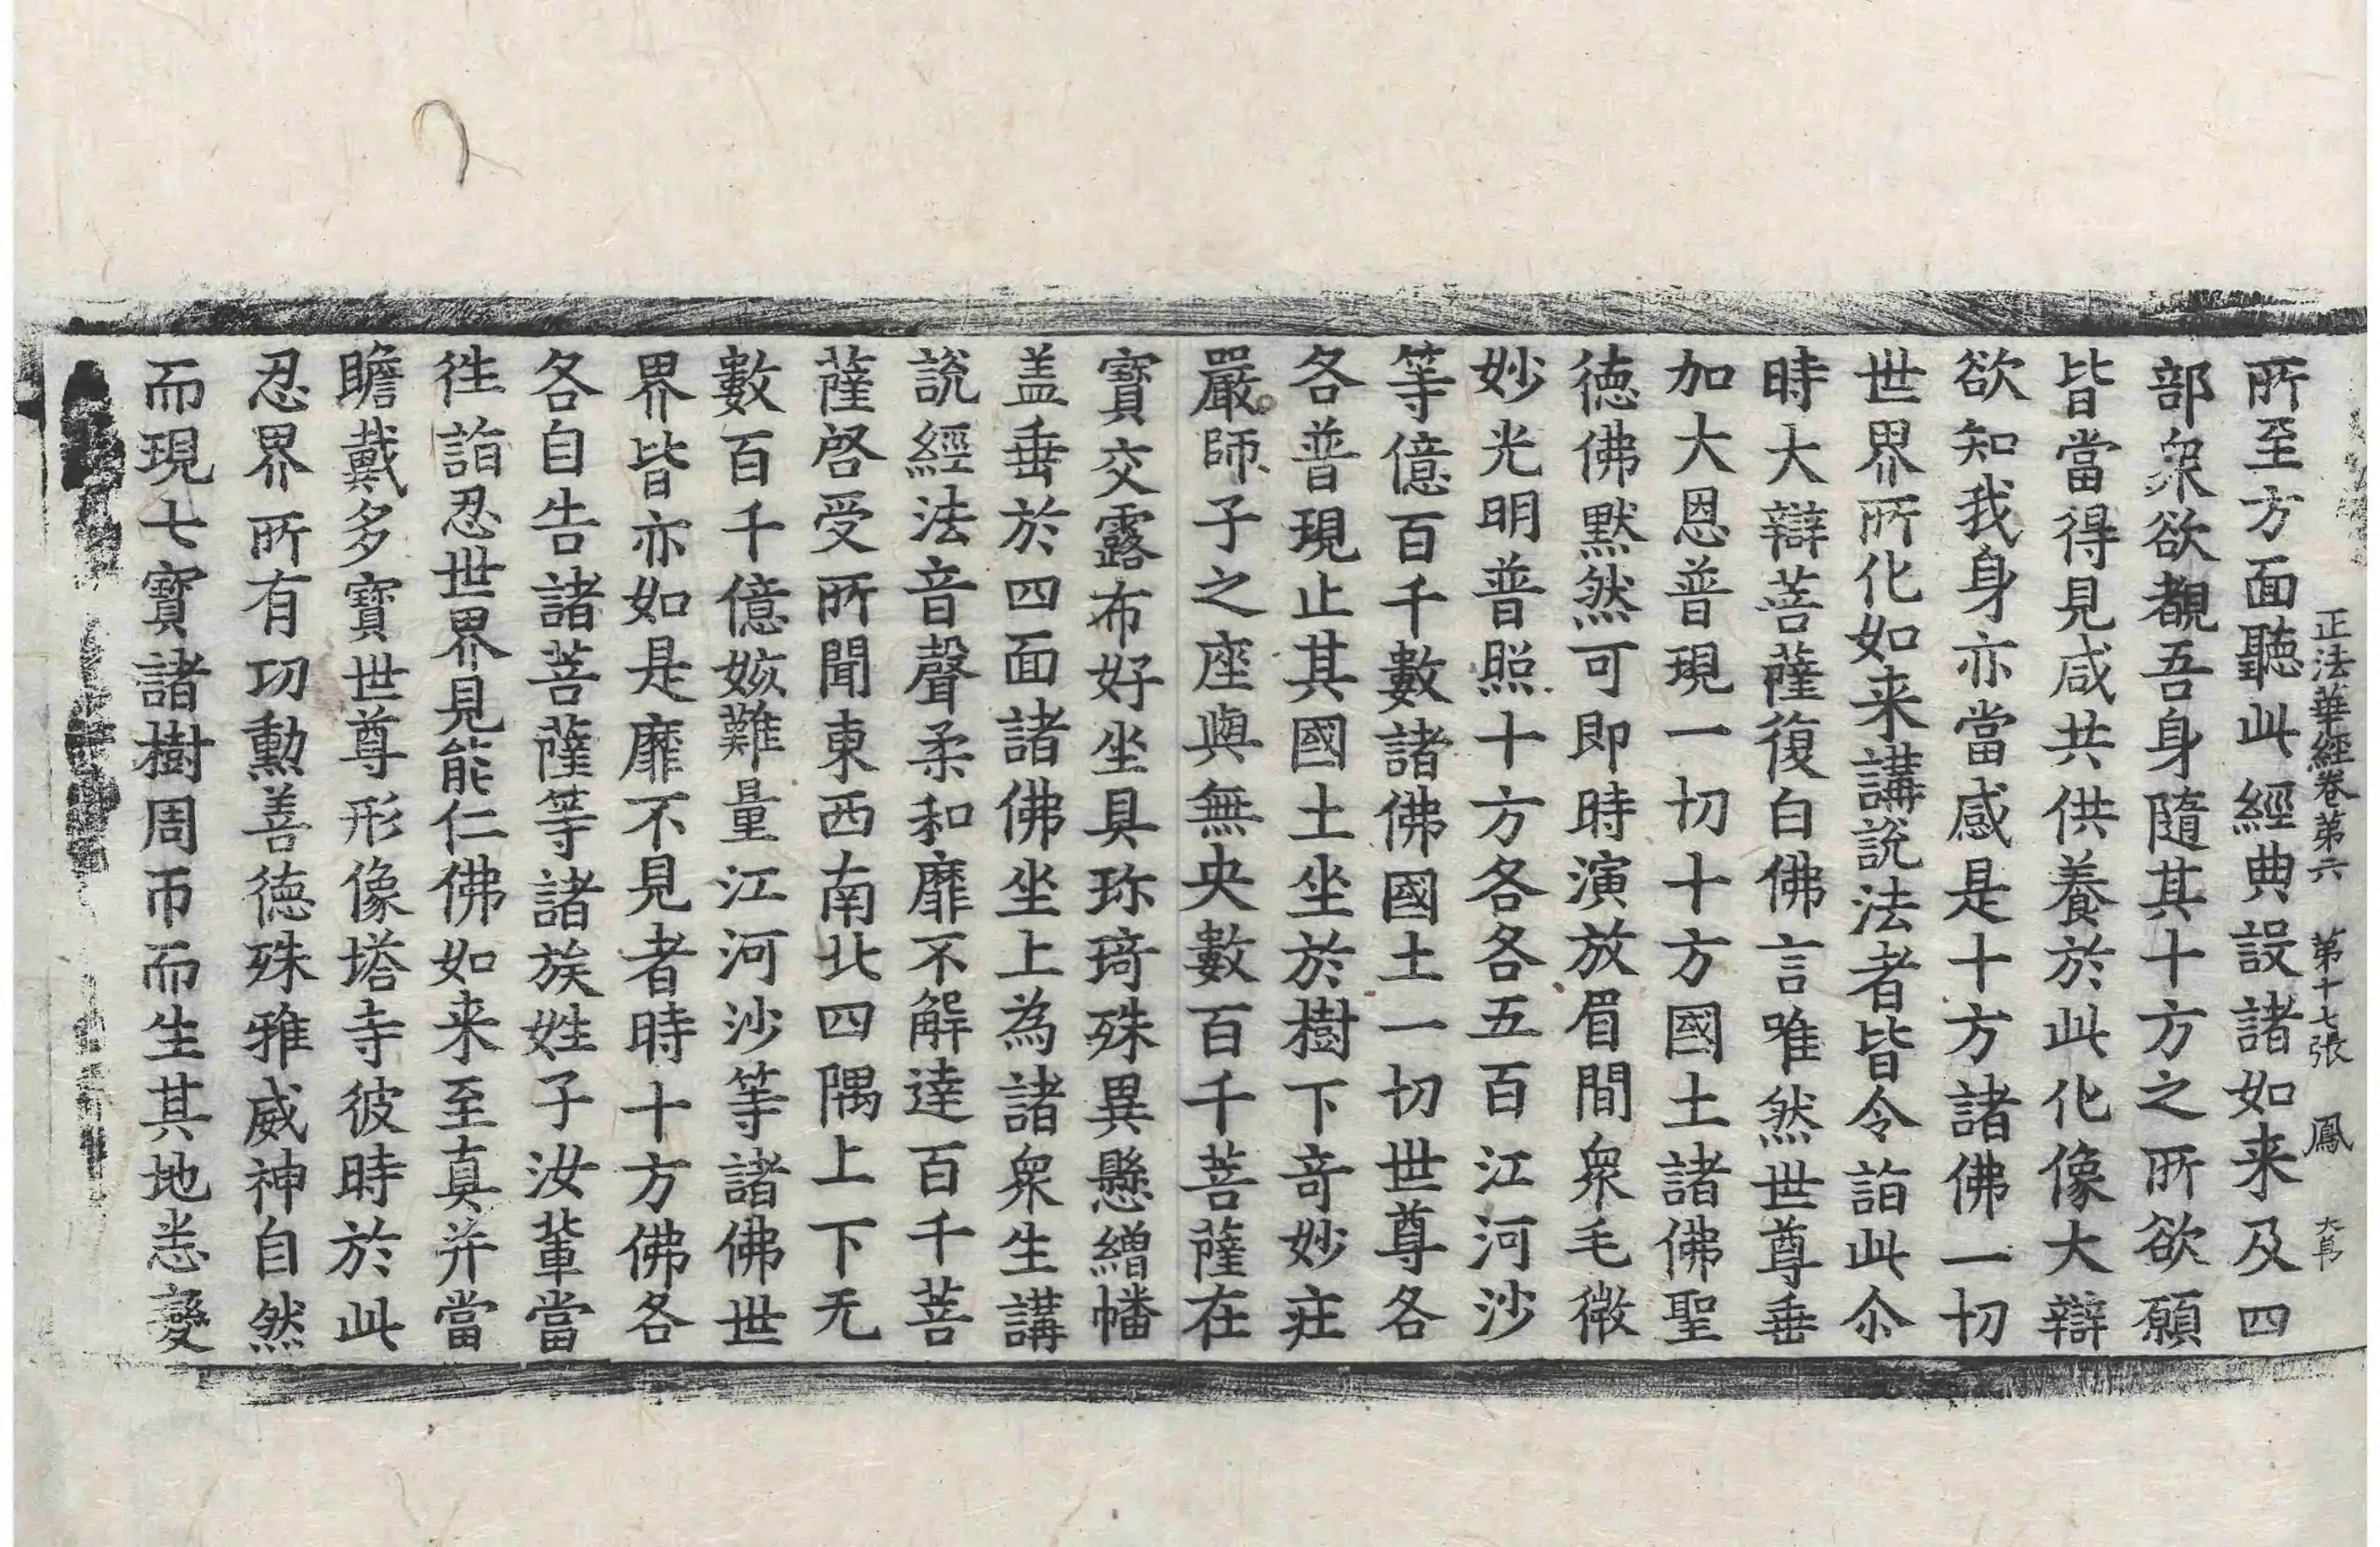 正法華經卷第六　第十七張　鳳
所至方面聽此經典設諸如来及四
部衆欲覩吾身隨其十方之所欲願
皆當得見咸共供養於此化像大辯
欲知我身亦當感是十方諸佛一切
世界所化如来講說法者皆令詣此尒
時大辯菩薩復白佛言唯然世尊垂
加大恩普現一切十方國土諸佛聖
德佛默然可即時演放眉間衆毛微
妙光明普照十方各各五百江河沙
等億百千數諸佛國土一切世尊各
各普現止其國土坐於樹下奇妙疰
嚴師子之座與無央數百千菩薩在
寶交露布好坐具珎琦殊異懸繒幡
盖垂於四面諸佛坐上為諸衆生講
說經法音聲柔和靡不解達百千菩
薩啓受所聞東西南北四隅上下无
數百千億姟難量江河沙等諸佛世
界皆亦如是靡不見者時十方佛各
各自告諸菩薩等諸族姓子汝輩當
徃詣忍世界見能仁佛如来至真并當
瞻戴多寶世尊形像塔寺彼時於此
忍界所有功勳善德殊雅威神自然
而現七寶諸樹周帀而生其地悉變